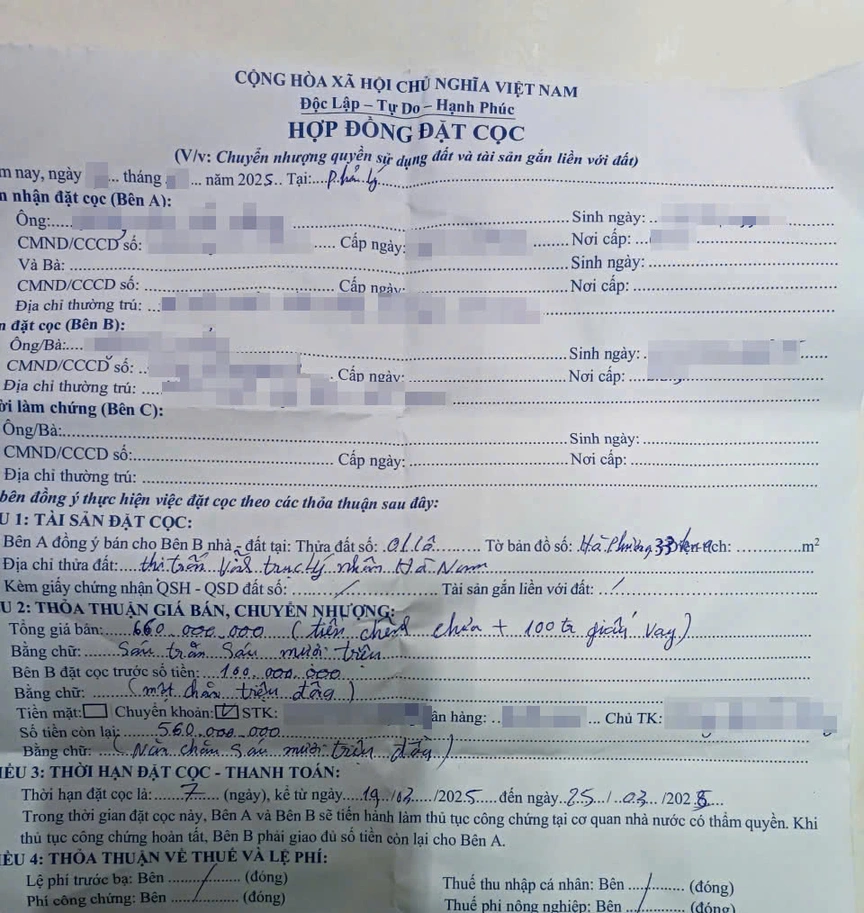 CỘNG HÒA XÃ HỘI CHỦ NGHĨA VIỆT NAM
Độc Lập – Tự Do – Hạnh Phúc
HỢP ĐỒNG ĐẶT CỌC
(V/v: Chuyển nhượng quyền sử dụng đất và tài sản gắn liền với đất)
m nay, ngày ... tháng ... năm 2025.. Tại:....Phủ lý
n nhận đặt cọc (Bên A):
Ông:..... Sinh ngày: ..
CMND/CCCD số: ..... Cấp ngày: ......... Nơi cấp: ...
Và Bà: Sinh ngày:
CMND/CCCD số: Cấp ngày Nơi cấp:
Địa chỉ thường trú: ...
n đặt cọc (Bên B):
Ông/Bà:.... Sinh ngày: .
CMND/CCCD số: .. Cấp ngày: Nơi cấp:
Địa chỉ thường trú: ....
ời làm chứng (Bên C):
Ông/Bà: Sinh ngày:
CMND/CCCD số: Cấp ngày: Nơi cấp:
Địa chỉ thường trú:
bên đồng ý thực hiện việc đặt cọc theo các thỏa thuận sau đây:
U 1: TÀI SẢN ĐẶT CỌC:
Bên A đồng ý bán cho Bên B nhà - đất tại: Thửa đất số: Tờ bản đồ số: tích: m²
Địa chỉ thửa đất: thị trấn Vĩnh trụ lý nhân Hà Nam
Kèm giấy chứng nhận QSH - QSD đất số: / Tài sản gắn liền với đất: /
U 2: THỎA THUẬN GIÁ BÁN, CHUYỂN NHƯỢNG:
Tổng giá bán: 660.000.000 (tiền chênh chưa + 100tr giấy vay)
Bằng chữ: Sáu trăm sáu mươi triệu
Bên B đặt cọc trước số tiền: 100.000.000
Bằng chữ: (một trăm triệu đồng)
Tiền mặt: Chuyển khoản: STK: ân hàng: .. ... Chủ TK:
Số tiền còn lại: 560.000.000
Bằng chữ: (Năm trăm sáu mươi triệu đồng)
IỀU 3: THỜI HẠN ĐẶT CỌC - THANH TOÁN:
Thời hạn đặt cọc là: 7 (ngày), kể từ ngày 19/03/2025 đến ngày 25/03/2025
Trong thời gian đặt cọc này, Bên A và Bên B sẽ tiến hành làm thủ tục công chứng tại cơ quan nhà nước có thẩm quyền. Khi
thủ tục công chứng hoàn tất, Bên B phải giao đủ số tiền còn lại cho Bên A.
IỀU 4: THỎA THUẬN VỀ THUẾ VÀ LỆ PHÍ:
Lệ phí trước bạ: Bên / (đóng) Thuế thu nhập cá nhân: Bên / (đóng)
Phí công chứng: Bên / (đóng) Thuế phi nông nghiệp: Bên / (đóng)